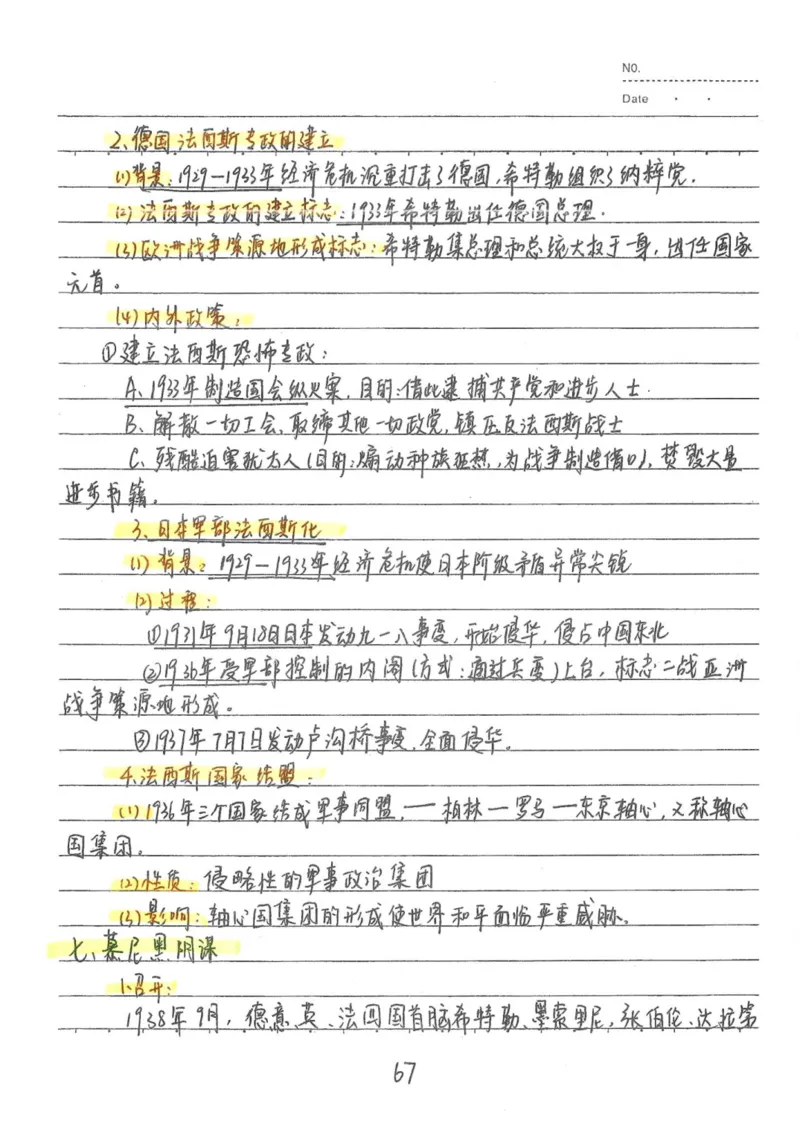 NO.
Date · ·
2、德国法西斯专政的建立
(1)背景：1929—1933年经济危机沉重打击了德国，希特勒组织了纳粹党.
(2)法西斯专政的建立标志：1933年希特勒出任德国总理.
(3)欧洲战争策源地形成标志：希特勒集总理和总统大权于一身，出任国家
元首。
(4)内外政策：
①建立法西斯恐怖专政：
A、1933年制造国会纵火案，目的：借此逮捕共产党和进步人士.
B、解散一切工会、取缔其他一切政党，镇压反法西斯战士
C、残酷迫害犹太人(目的：煽动种族狂热，为战争制造借口)，焚毁大量
进步书籍。
3、日本军部法西斯化
(1)背景：1929—1933年经济危机使日本阶级矛盾异常尖锐
(2)过程：
①1931年9月18日日本发动九一八事变，开始侵华，侵占中国东北
②1936年受军部控制的内阁(方式：通过兵变)上台，标志二战亚洲
战争策源地形成。
③1937年7月7日发动卢沟桥事变，全面侵华。
4.法西斯国家结盟：
(1)1936年三个国家结成军事同盟，—柏林—罗马—东京轴心，又称轴心
国集团。
(2)性质：侵略性的军事政治集团
(3)影响：轴心国集团的形成使世界和平面临严重威胁。
七、慕尼黑阴谋
1.召开：
1938年9月，德、意、英、法四国首脑希特勒、墨索里尼，张伯伦、达拉第
67